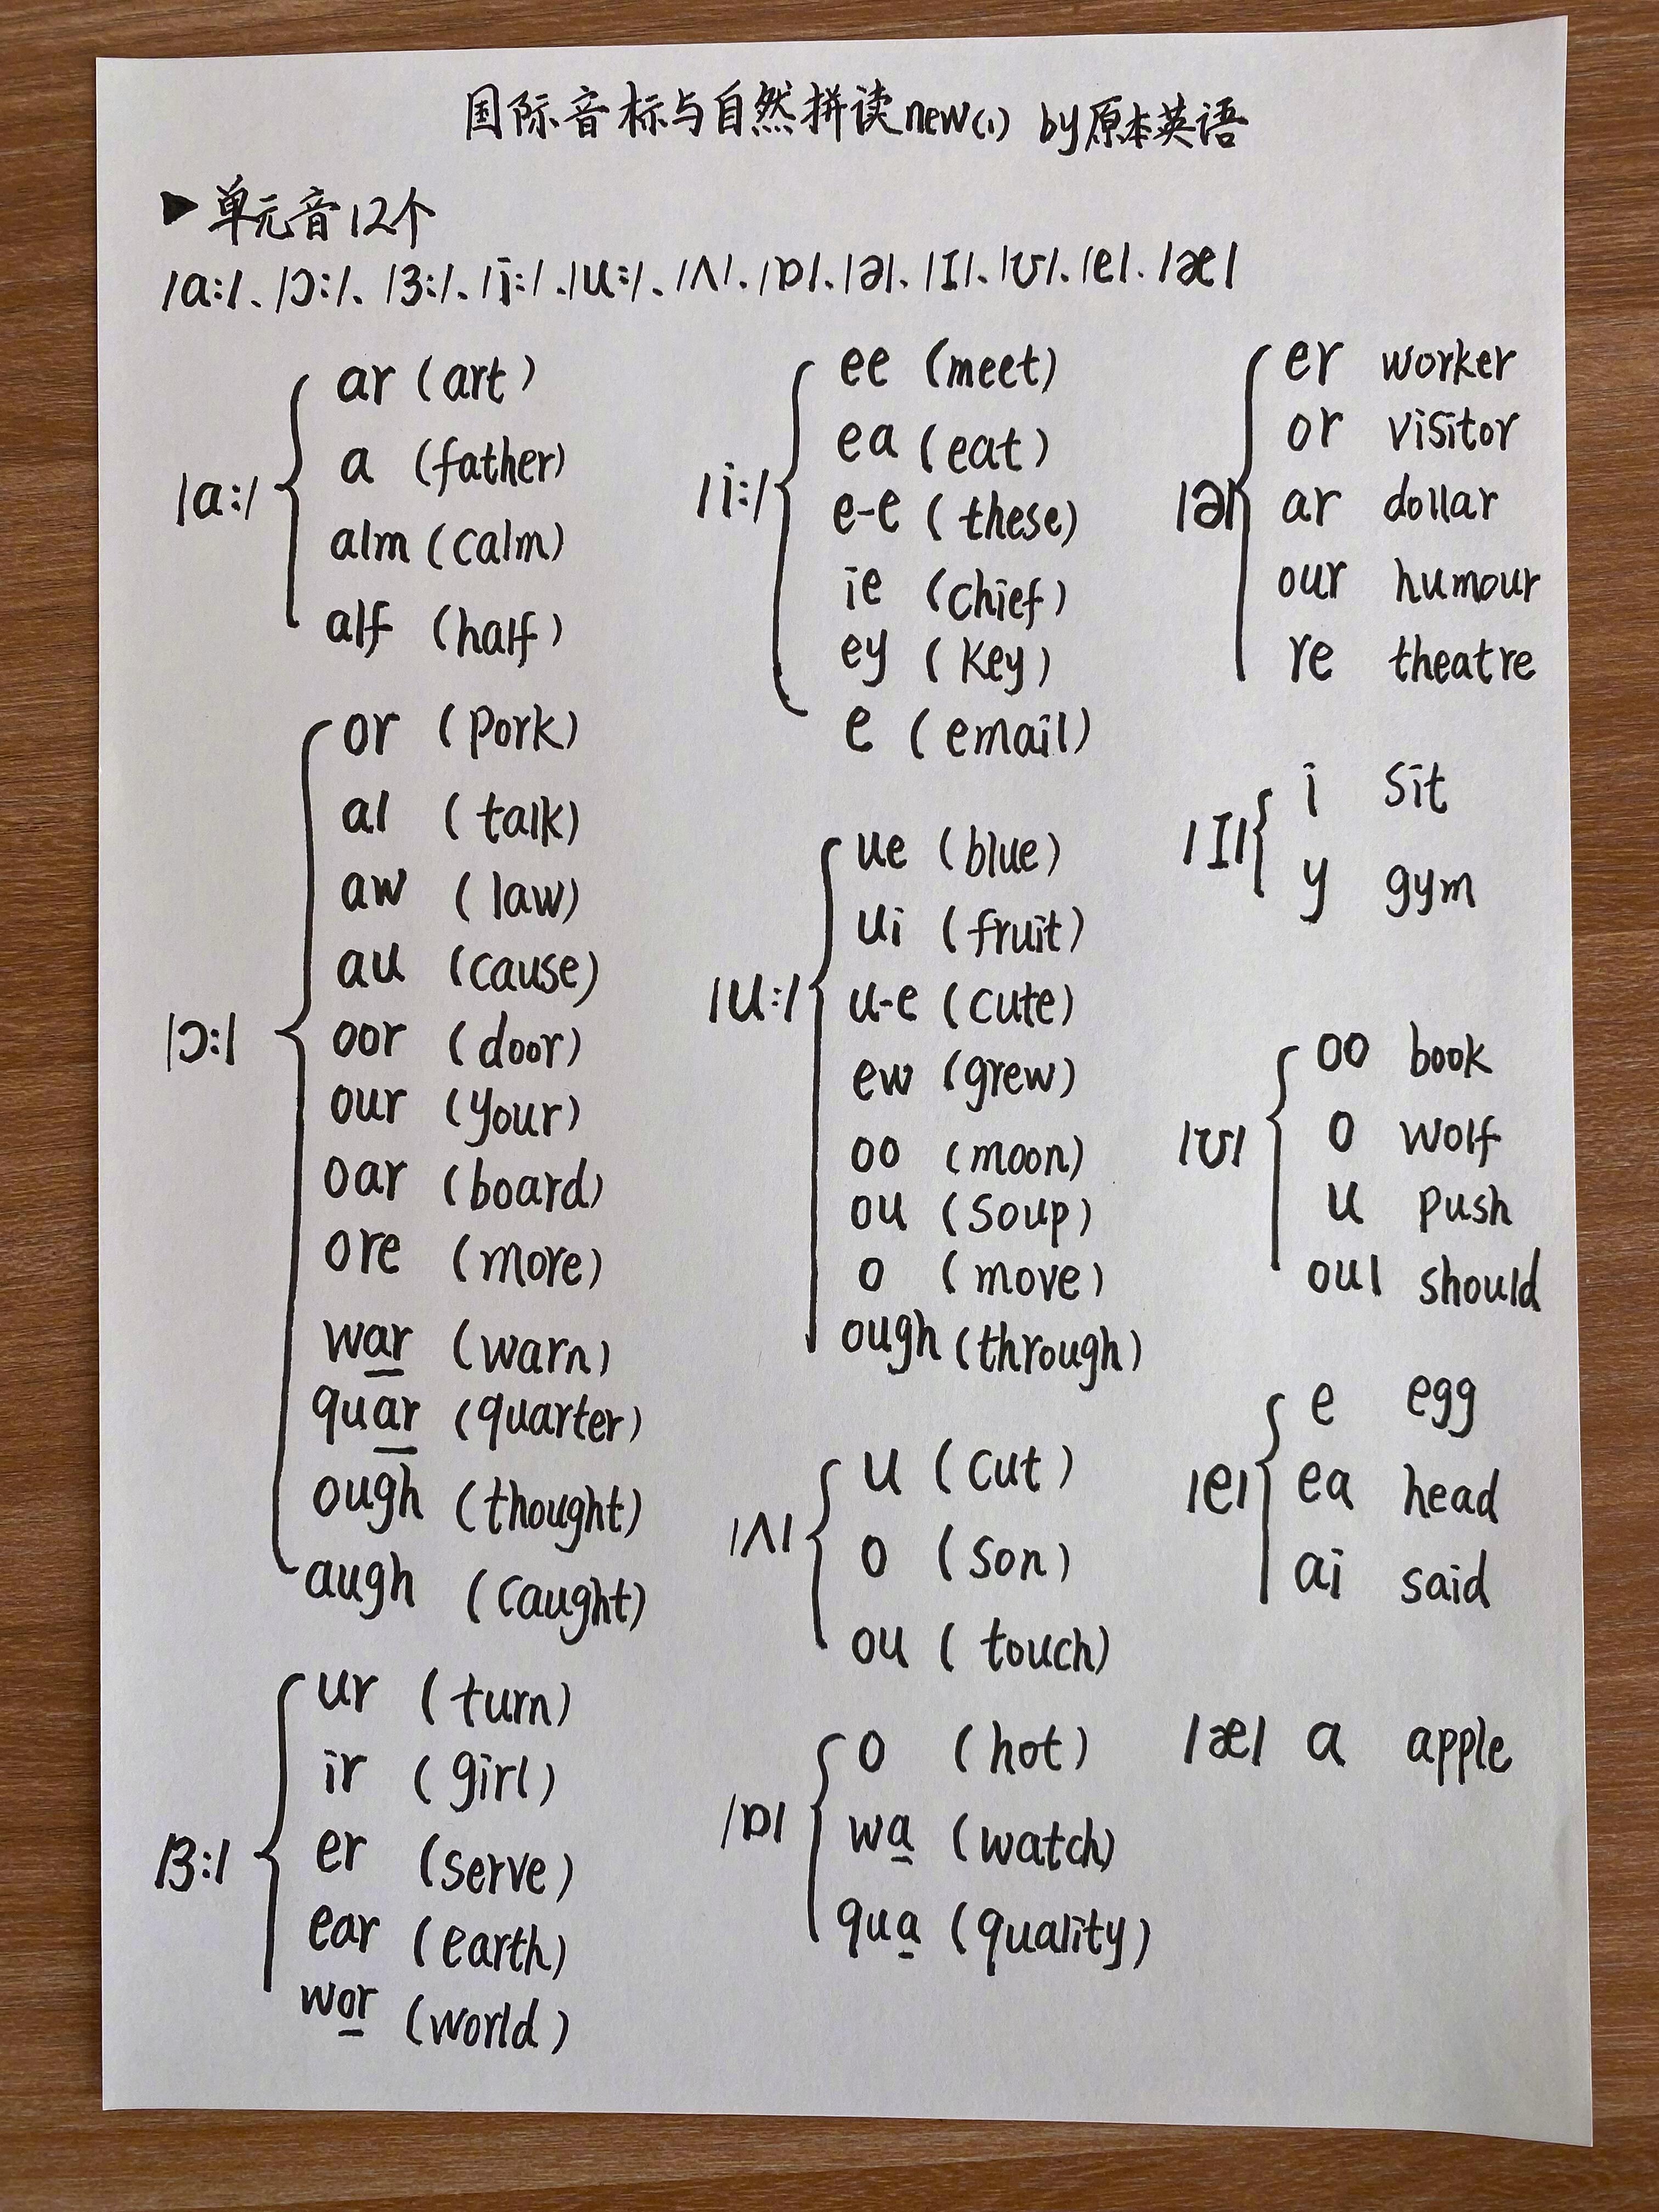 国际音标与自然拼读new(1) by原本英语
▶单元音12个
/a:/、/ɔ:/、/ɜ:/、/i:/、/u:/、/ʌ/、/ɒ/、/ə/、/ɪ/、/ʊ/、/e/、/æ/
/a:/
ar (art)
a (father)
alm (calm)
alf (half)
/ɔ:/
or (pork)
al (talk)
aw (law)
au (cause)
oor (door)
our (your)
oar (board)
ore (more)
war (warn)
quar (quarter)
ough (thought)
augh (caught)
/ɜ:/
ur (turn)
ir (girl)
er (serve)
ear (earth)
wor (world)
/i:/
ee (meet)
ea (eat)
e-e (these)
ie (chief)
ey (key)
e (email)
/u:/
ue (blue)
ui (fruit)
u-e (cute)
ew (grew)
oo (moon)
ou (soup)
o (move)
ough (through)
/ʌ/
u (cut)
o (son)
ou (touch)
/ɒ/
o (hot)
wa (watch)
qua (quality)
/ə/
er worker
or visitor
ar dollar
our humour
re theatre
/ɪ/
i sit
y gym
/ʊ/
oo book
o wolf
u push
oul should
/e/
e egg
ea head
ai said
/æ/ a apple